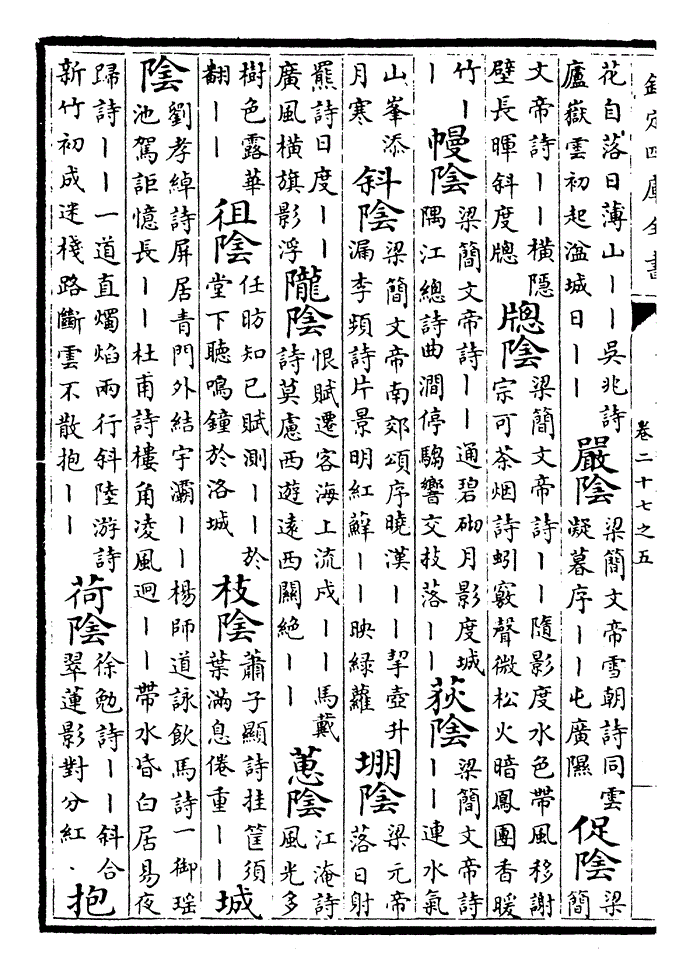 欽定四庫全書 卷二十七之五
花自落日薄山丨丨吳兆詩廬嶽雲初起湓城日丨丨嚴陰梁簡文帝雪朝詩同雲凝暮序丨丨屯廣隰促陰梁簡
文帝詩丨丨橫隱壁長暉斜度牕牕陰梁簡文帝詩丨丨隨影度水色帶風移謝宗可茶烟詩蚓竅聲微松火暗鳳團香暖
竹丨丨幔陰梁簡文帝詩丨丨通碧砌月影度城隅江總詩曲澗停騶響交枝落丨丨荻陰梁簡文帝詩丨丨連水氣
山峯添月寒斜陰梁簡文帝南郊頌序曉漢丨丨挈壺升漏李頻詩片景明紅蘚丨丨映綠蘿堋陰梁元帝落日射
羆詩日度丨丨廣風橫旗影浮隴陰恨賦遷客海上流戍丨丨馬戴詩莫慮西遊遠西關絶丨丨蕙陰江淹詩風光多
樹色露華翻丨丨徂陰任昉知己賦測丨丨於堂下聽鳴鐘於洛城枝陰蕭子顯詩挂筐須葉滿息倦重丨丨城
陰劉孝綽詩屏居青門外結宇灞丨丨楊師道詠飲馬詩一御瑶池駕詎憶長丨丨杜甫詩樓角凌風迥丨丨帶水昏白居易夜
歸詩丨丨一道直燭焰兩行斜陸游詩新竹初成迷棧路斷雲不散抱丨丨荷陰徐勉詩丨丨斜合翠蓮影對分紅抱